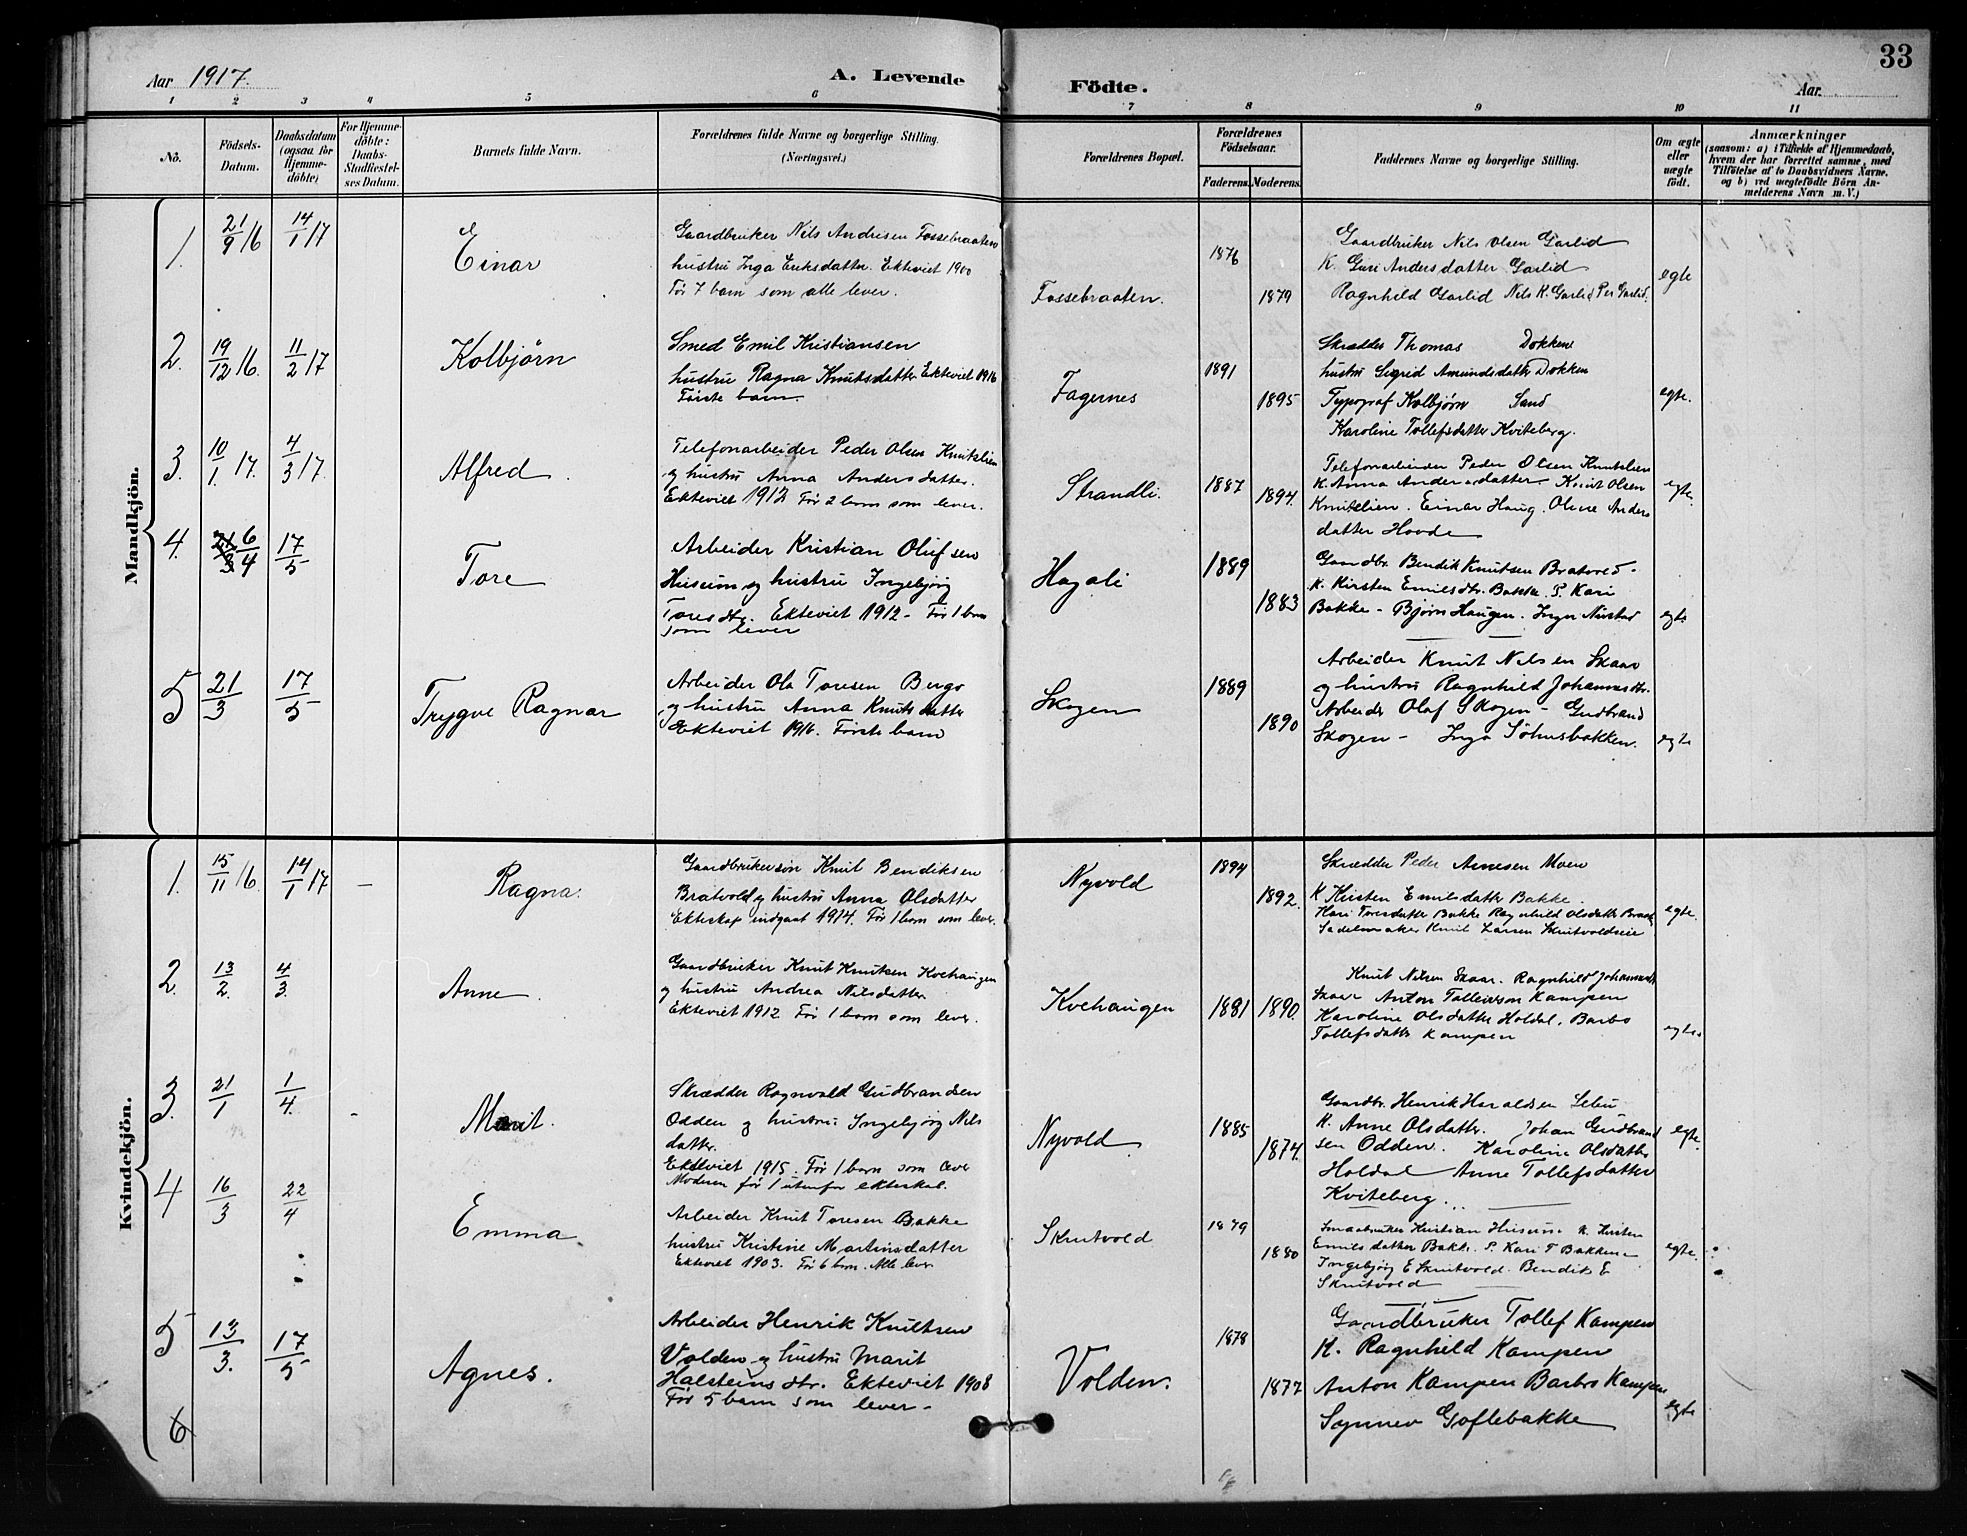 33
Aar 1917.
A. Levende
Födte.
Aar
1 2 3 4 5 6 7 8 9 10 11
No.
Födsels-
Datum.
Daabsdatum
(ogsaa for
Hjemme-
döbte)
For Hjemme-
döbte:
Daabs-
Stadfæstel-
ses Datum.
Barnets fulde Navn.
Forældrenes fulde Navne og borgerlige Stilling.
(Næringsvei.)
Forældrenes Bopæl.
Forældrenes
Födselsaar.
Faderens. Moderens.
Faddernes Navne og borgerlige Stilling.
Om ægte
eller
uægte
födt.
Anmærkninger
(saasom: a) i Tilfælde af Hjemmedaab,
hvem der har forrettet samme, med
Tilföielse af to Daabsvidners Navne,
og b) ved uægtefödte Börn An-
melderens Navn m. V.)
Mandkjön.
1. 21/9 16 14/1 17
Einar
Gaardbruker Nils Andrisen Fossebraaten
hustru Inga Eriksdatter. Ekteviet 1900
Før 7 barn som alle lever.
Fossebraaten.
1876
1879
Gaardbruker Nils Olsen Garlid
K. Guri Andersdatter Garlid
Ragnhild Garlid Nils K. Garlid Per Garlid.
egte
2. 19/12 16. 11/2 17
Kolbjørn
Smed Emil Kristiansen
hustru Ragna Knutsdatter Ekteviet 1916
Første barn.
Fagernes
1891
1895
Skrædder Thomas Dokken
hustru Sigrid Amundsdatter Dokken
Typograf Kolbjørn Sand
Karoline Tollefsdatter Kviteberg.
egte.
3. 10/1 17. 4/3 17.
Alfred
Telefonarbeider Peder Olsen Knutslien
og hustru Anna Andersdatter.
Ekteviet 1912 Før 2 barn som lever.
Strandli.
1887
1894.
Telefonarbeider Peder Olsen Knutslien
K. Anna Andersdatter Knut Olsen
Knutslien. Einar Haug. Oline Anders
datter Hovde
egte.
4. 21/3 6/4 17/5
Tore
Arbeider Kristian Olufsen
Husum og hustru Ingebjørg
Toresdtr. Ekteviet 1912 - Før 1 barn
som lever
Hagali
1889
1883
Gaardbr. Bendik Knutsen Bratvold.
K. Kirsten Emilsdtr. Bakke. P. Kari
Bakke - Bjørn Haugen. Inga
egte
5 21/3 17/5
Trygve Ragnar
Arbeider Ola Toresen Berge
og hustru Anna Knutsdatter
Ekteviet 1916. Første barn
Skogen
1889
1890
Arbeider Knut Nilsen Skaar
og hustru Ragnhild Johannesdtr.
Arbeider Olaf Skogen - Gudbrand
Skogen - Inga
egte
Kvindekjön.
1. 15/11 16. 14/1 17 -
Ragna.
Gaardbrukersøn Knut Bendiksen
Bratvold og hustru Anna Olsdatter
Ekteskap indgaat 1914. Før 1 barn som lever.
Nyvold
1894
1892.
Skrædder Peder Arnesen Moen
K Kirsten Emilsdatter Bakke.
Kari Toresdatter Bakke Ragnhild Olsdatter
Sadelmaker Knut Larsen Skrutvoldseie
egte.
2. 13/2. 4/3.
Anne
Gaardbruker Knut Knutsen Kvehaugen
og hustru Andrea Nilsdatter
Ekteviet 1912. Før 1 barn som lever.
Kvehaugen
1881 1890.
Knut Nilsen Skaar. Ragnhild Johannesdtr
Skaar Anton Tollefson Kampen
Karoline Olsdatter Holdal. Barbo
Tollefsdatter Kampen
egte.
3. 21/1 1/4. -
Marit.
Skrædder Ragnvald Gudbrandsen
Odden og hustru Ingebjørg Nils
datter.
Ekteviet 1915. Før 1 barn som lever
Moderen før 1 utenfor ekteskab.
Nyvold
1885
1874.
Gaardbr. Henrik Haraldsen Lebu
K. Anne Olsdatter. Johan Gudbrand
sen Odden. Karoline Olsdatter
Holdal Anne Tollefsdatter
Kviteberg.
egte.
4 16/3 22/4
Emma
Arbeider Knut Toresen Bakke
hustru Kristine Martinsdatter
Ekteviet 1903. Før 6 barn. Alle lever
Skrutvold
1879
1880
Smaabruker Kristian Husum. K. Kirsten
Emilsdatter Bakke. P. Kari T Bakken -
Ingebjørg E Skrutvold. Bendik E
Skrutvold
egte.
5 13/3. 17/5
Agnes.
Arbeider Henrik Knutsen
Volden og hustru Marit
Halsteinsdtr. Ekteviet 1908
Før 5 barn som lever -
Volden.
1878
1877
Gaardbruker Tollef Kampen
K. Ragnhild Kampen
Anton Kampen Barbro Kampen
Synnev Goflebakke
egte
6